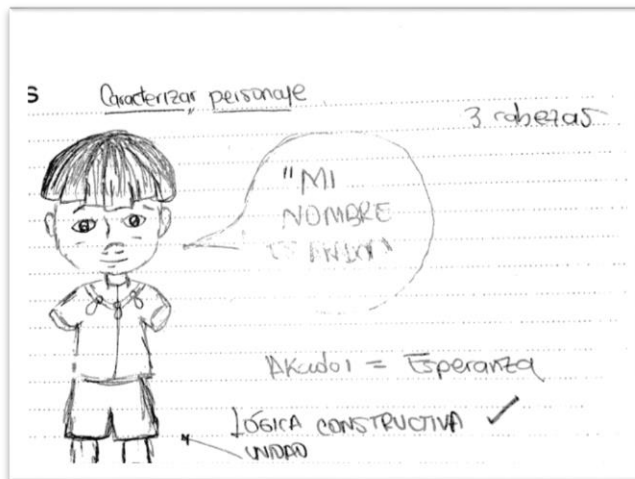 S
Caracterizar personaje
3 cabezas
"MI
NOMBRE
ES
= Esperanza
LÓGICA CONSTRUCTIVA ✓
UNIDAD